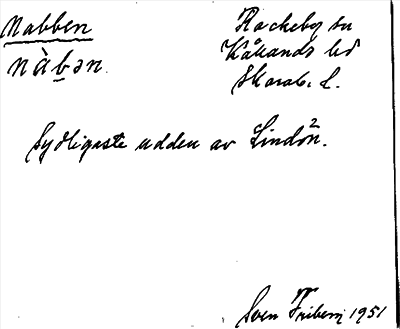 Nabben
nàbən.
Råckeby sn
Kållands hd
Skarab. L.
Sydligaste udden av Lindön².
Sven Friberg 1951